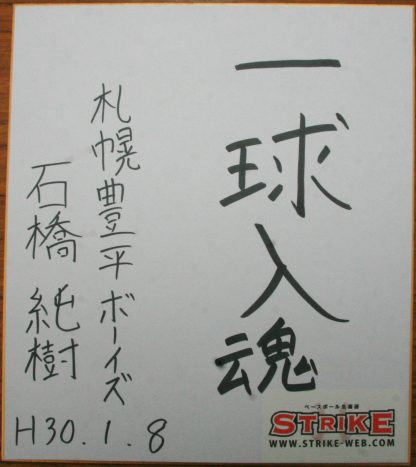 一球入魂
札幌豊平ボーイズ
石橋純樹
H30.1.8
ベースボール主義
STRIKE
WWW.STRIKE-WEB.COM